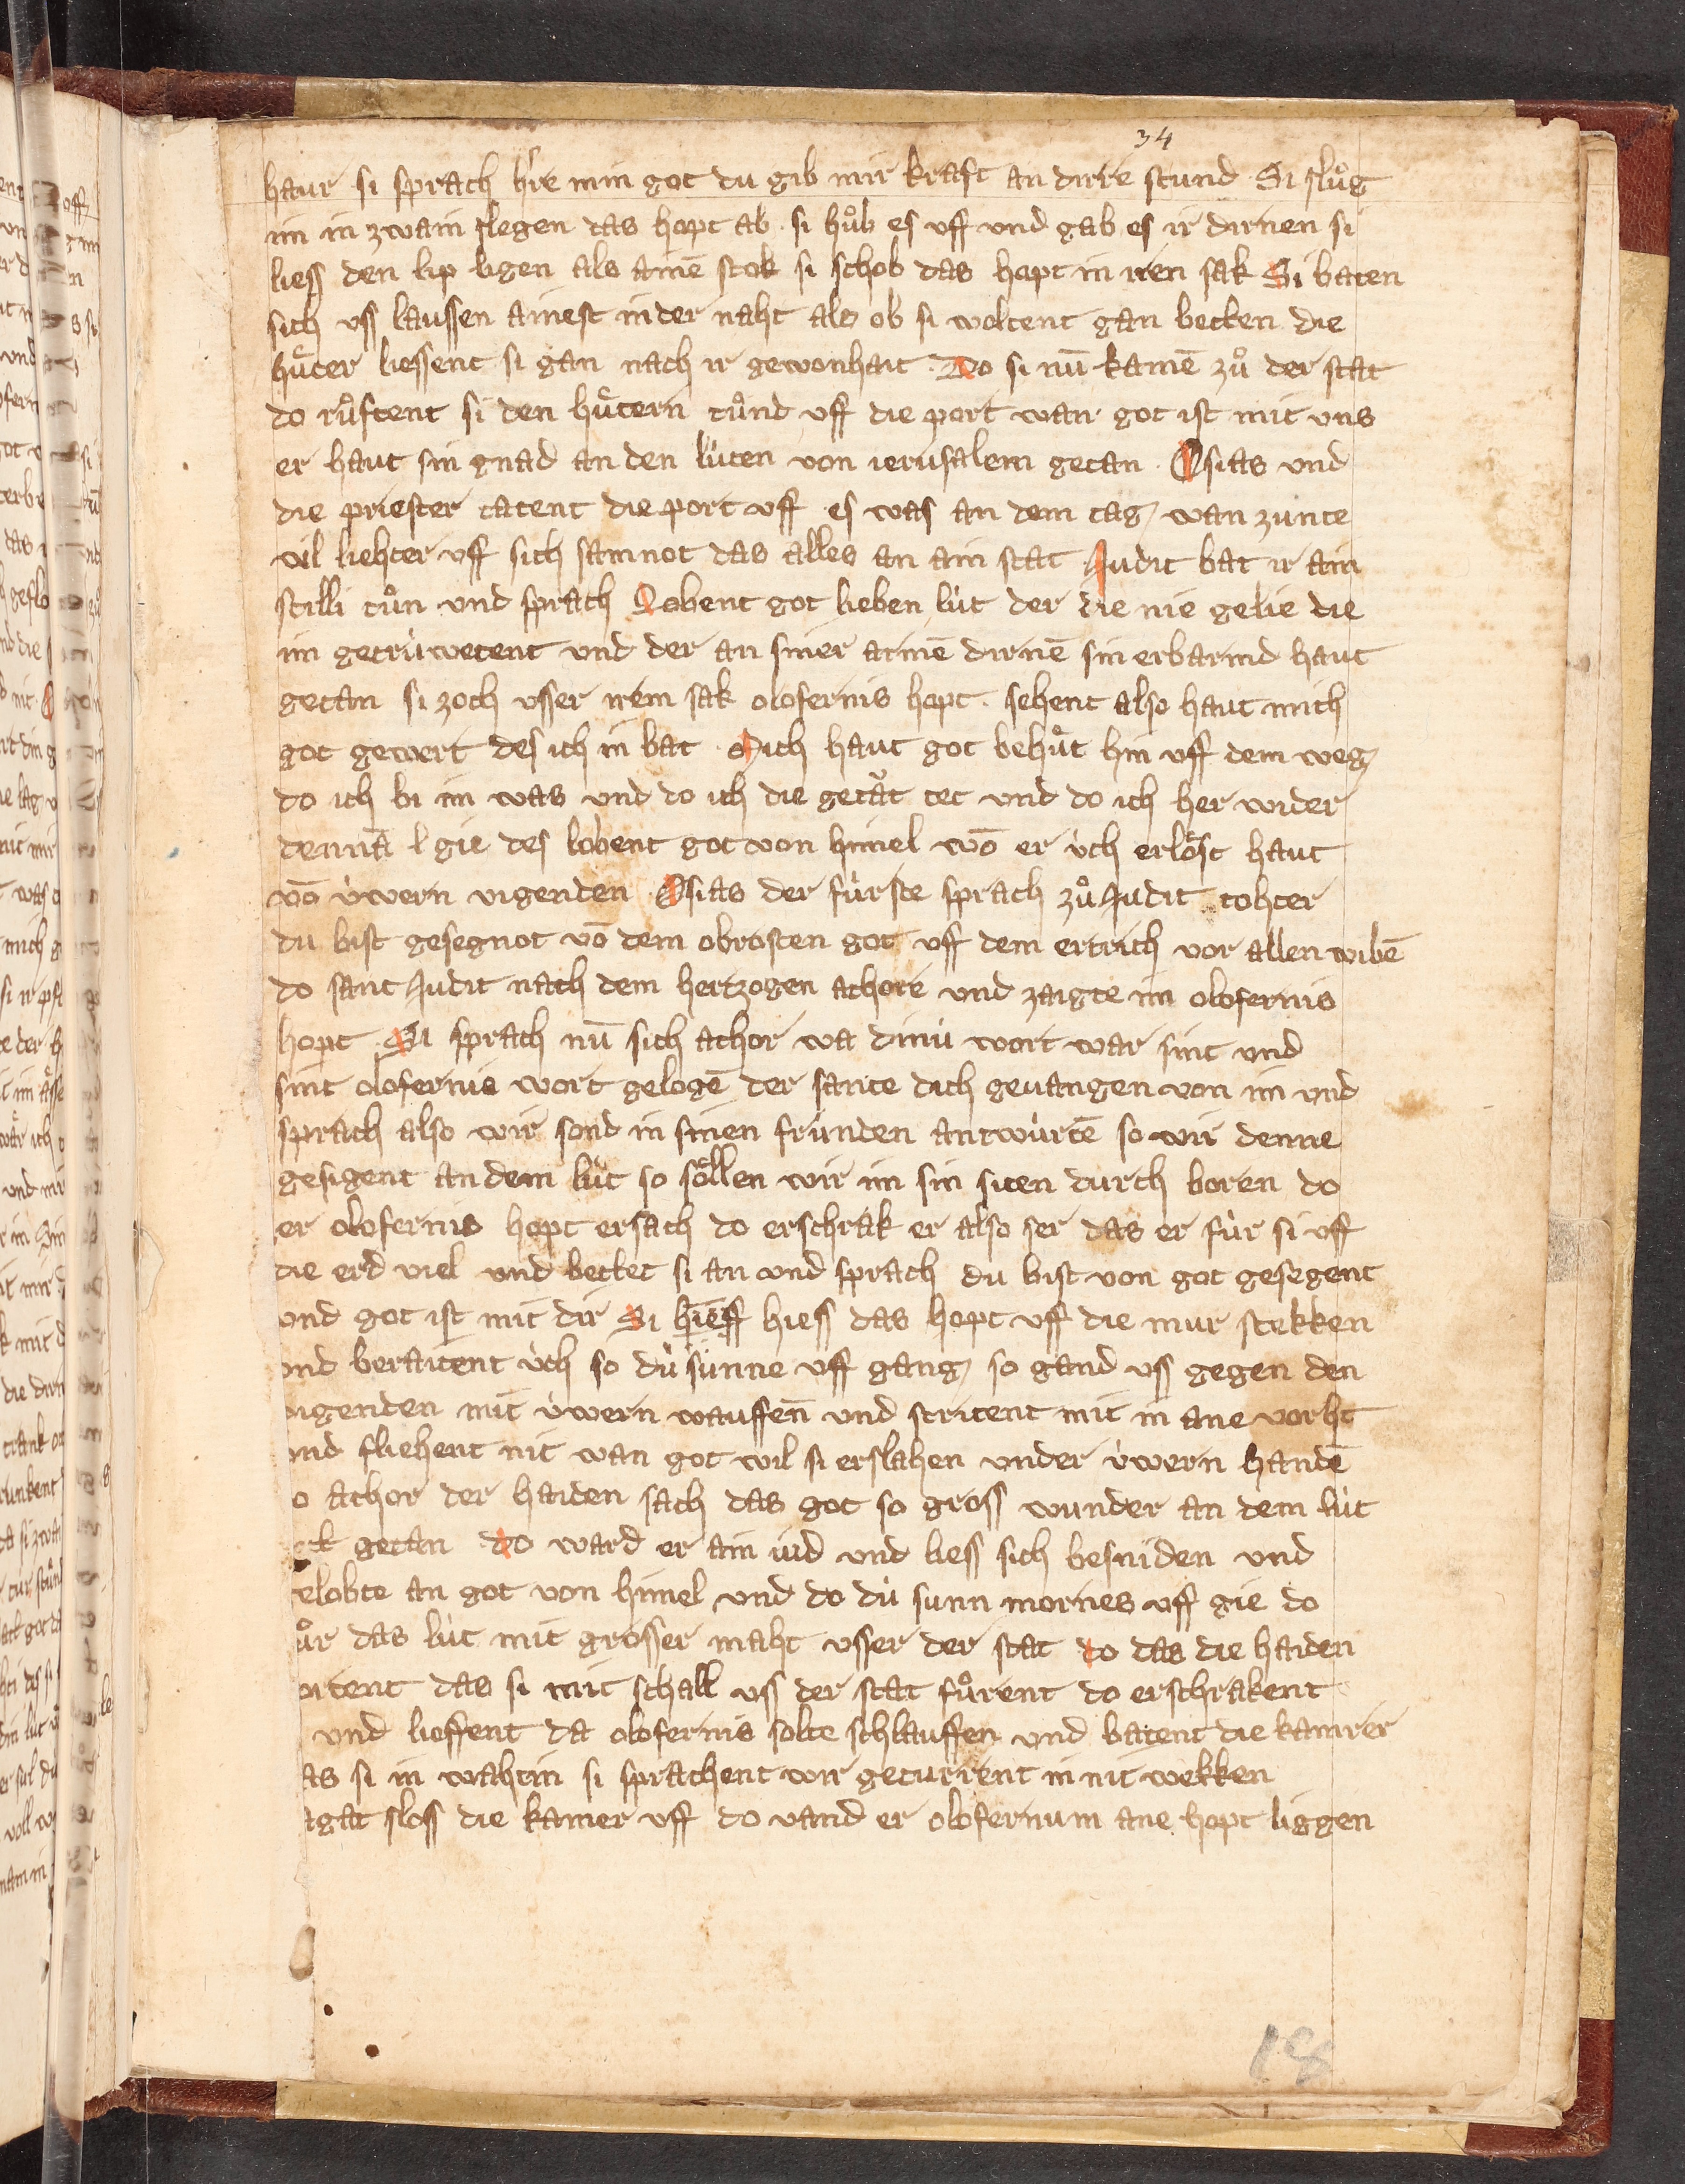 34
haur si sprach hre min got du gib mir kraft an dirre stund Si slůg
im in zwain slegen das hopt ab . si hůb es vff und gab es ir dirnen si
liess den lip ligen als ainē stok si schob das hopt in iren sak Si baten
sich vss laussen ainest in der naht als ob si woltent gan betten die
hůter liessent si gan nach ir gewonhait . Do si nū kamē zů der stat
do růftent si den hůtern tůnd vff die port wan got ist mit vns
er haut sin gnad an den lúten von ierusalem getan . Osias und
die priester tatent die port vff es was an dem tag wan zunte
vil liehter vff sich samnot das alles an ain stat Judit bat ir ain
stilli tůn und sprach Lobent got lieben lút der die nie gelie die
im getrúwetent und der an siner armē dirnē sin erbarmd haut
getan si zoch vsser irem sak olofernis hopt . sehent also haut mich
got gewert des ich in bat . Mich haut got behůt hin vff dem weg
do ich bi im was und do ich die getåt tet und do ich her wider
dennā gie des lobent got von himel wō er úch erlöst haut
vō úwern vigenden Osias der fúrste sprach zů Judit tohter
du bist gesegnot vō dem obrosten got vff dem ertrich vor allen wibē
do sant Judit nach dem hertzogen achore und zaigte im olofernis
hopt . Si sprach nū sich achor wa dinú wort war sint und
sint olofernis wort gelogē der sante dich geuangen von im und
sprach also wir sond in sinen frúnden antwúrtē so wir denne
gesigent an dem lút so söllen wir im sin siten durch boren do
er olofernis hopt ersach do erschrak er also ser das er fúr si vff
die erd viel und bettet si an und sprach du bist von got gesegent
und got ist mit dir Si hieff hiess das hopt vff die mur stekken
und beraitent úch so dú sunne vff gang so gand vss gegen den
vigenden mit úwern wauffen und stritent mit in ane vorht
und fliehent nit wan got wil si erslahen under úwern handē
o achor der haiden sach das got so gross wunder an dem lút
getan do ward er ain iud und liess sich besniden und
elobte an got von himel und do dú sunn mornes vff gie do
ůr das lút mit grosser maht vsser der stat do das die haiden
ortent das si mit schall vss der stat fůrent do erschrakent
und lieffent da olofernis solte schlauffen und batent die kamrer
as si in wahtin si sprachent wir geturrent in nit wekken
agat sloss die kamer vff do vand er olofernum ane hopt liggen
18